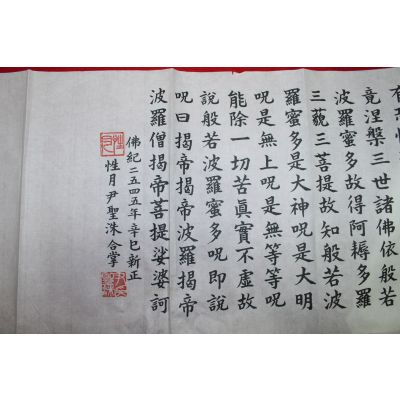 竟涅槃三世諸佛依般若
波羅蜜多故得阿耨多羅
三藐三菩提故知般若波
羅蜜多是大神呪是大明
呪是無上呪是無等等呪
能除一切苦眞實不虛故
說般若波羅蜜多呪即說
呪曰揭帝揭帝波羅揭帝
波羅僧揭帝菩提娑婆訶
佛紀二五四五年辛巳新正
性月尹聖洙合掌